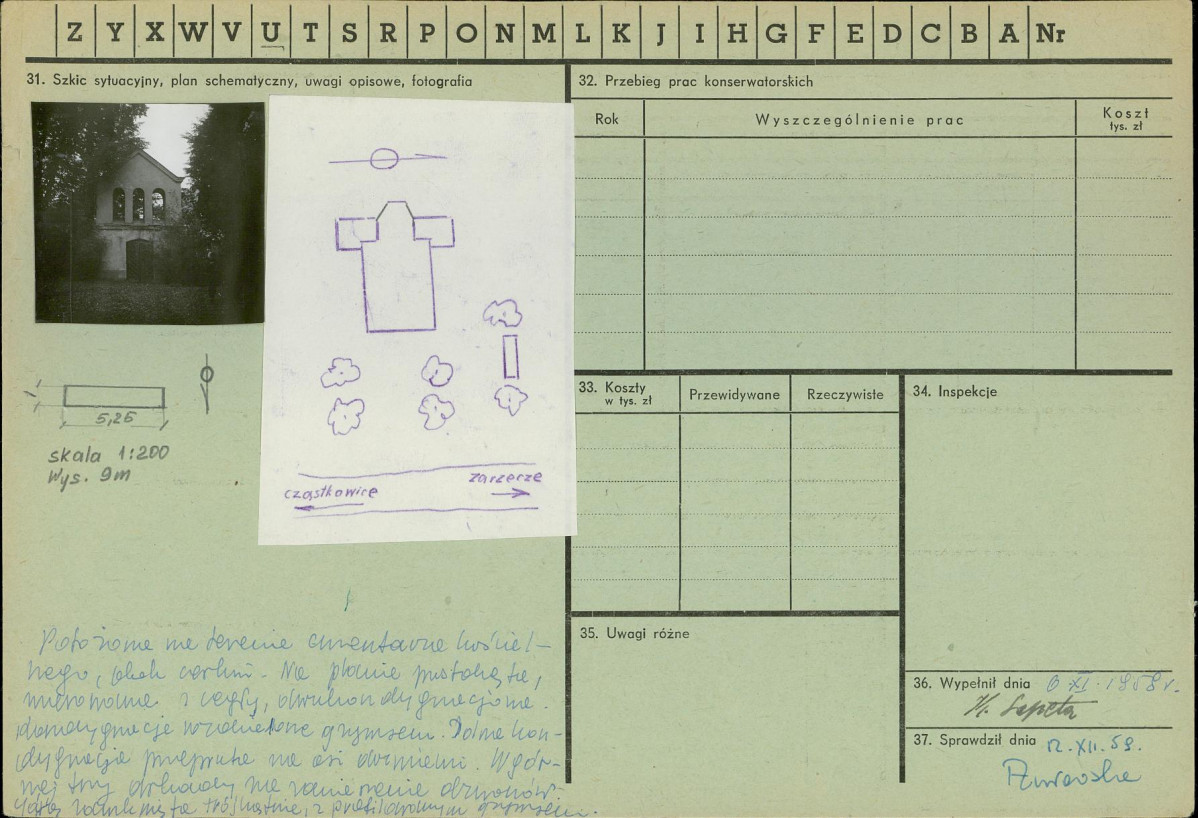 Z Y X W V U T S R P O N M L K J I H G F E D C B A Nr
31. Szkic sytuacyjny, plan schematyczny, uwagi opisowe, fotografia
5,25
skala 1:200
wys. 9m
cząstkowice
zarzerze
Położona na terenie cmentarza kościel-
nego, obok cerkwi. Na planie prostokąta,
murowana z cegły, dwukondygnacjowa.
kondygnacje rozdzielone gzymsem. Dolna kon-
dygnacja przepruta na osi drzwiami. W gór-
nej trzy arkady na zawieszenie dzwonów.
trójkątnie, z profilowanym gzymsem.
32. Przebieg prac konserwatorskich
Rok
Wyszczególnienie prac
Koszt
tys. zł
33. Koszty
w tys. zł
Przewidywane
Rzeczywiste
34. Inspekcje
35. Uwagi różne
36. Wypełnił dnia 6 XI. 1959 r.
37. Sprawdził dnia 12. XII. 59.